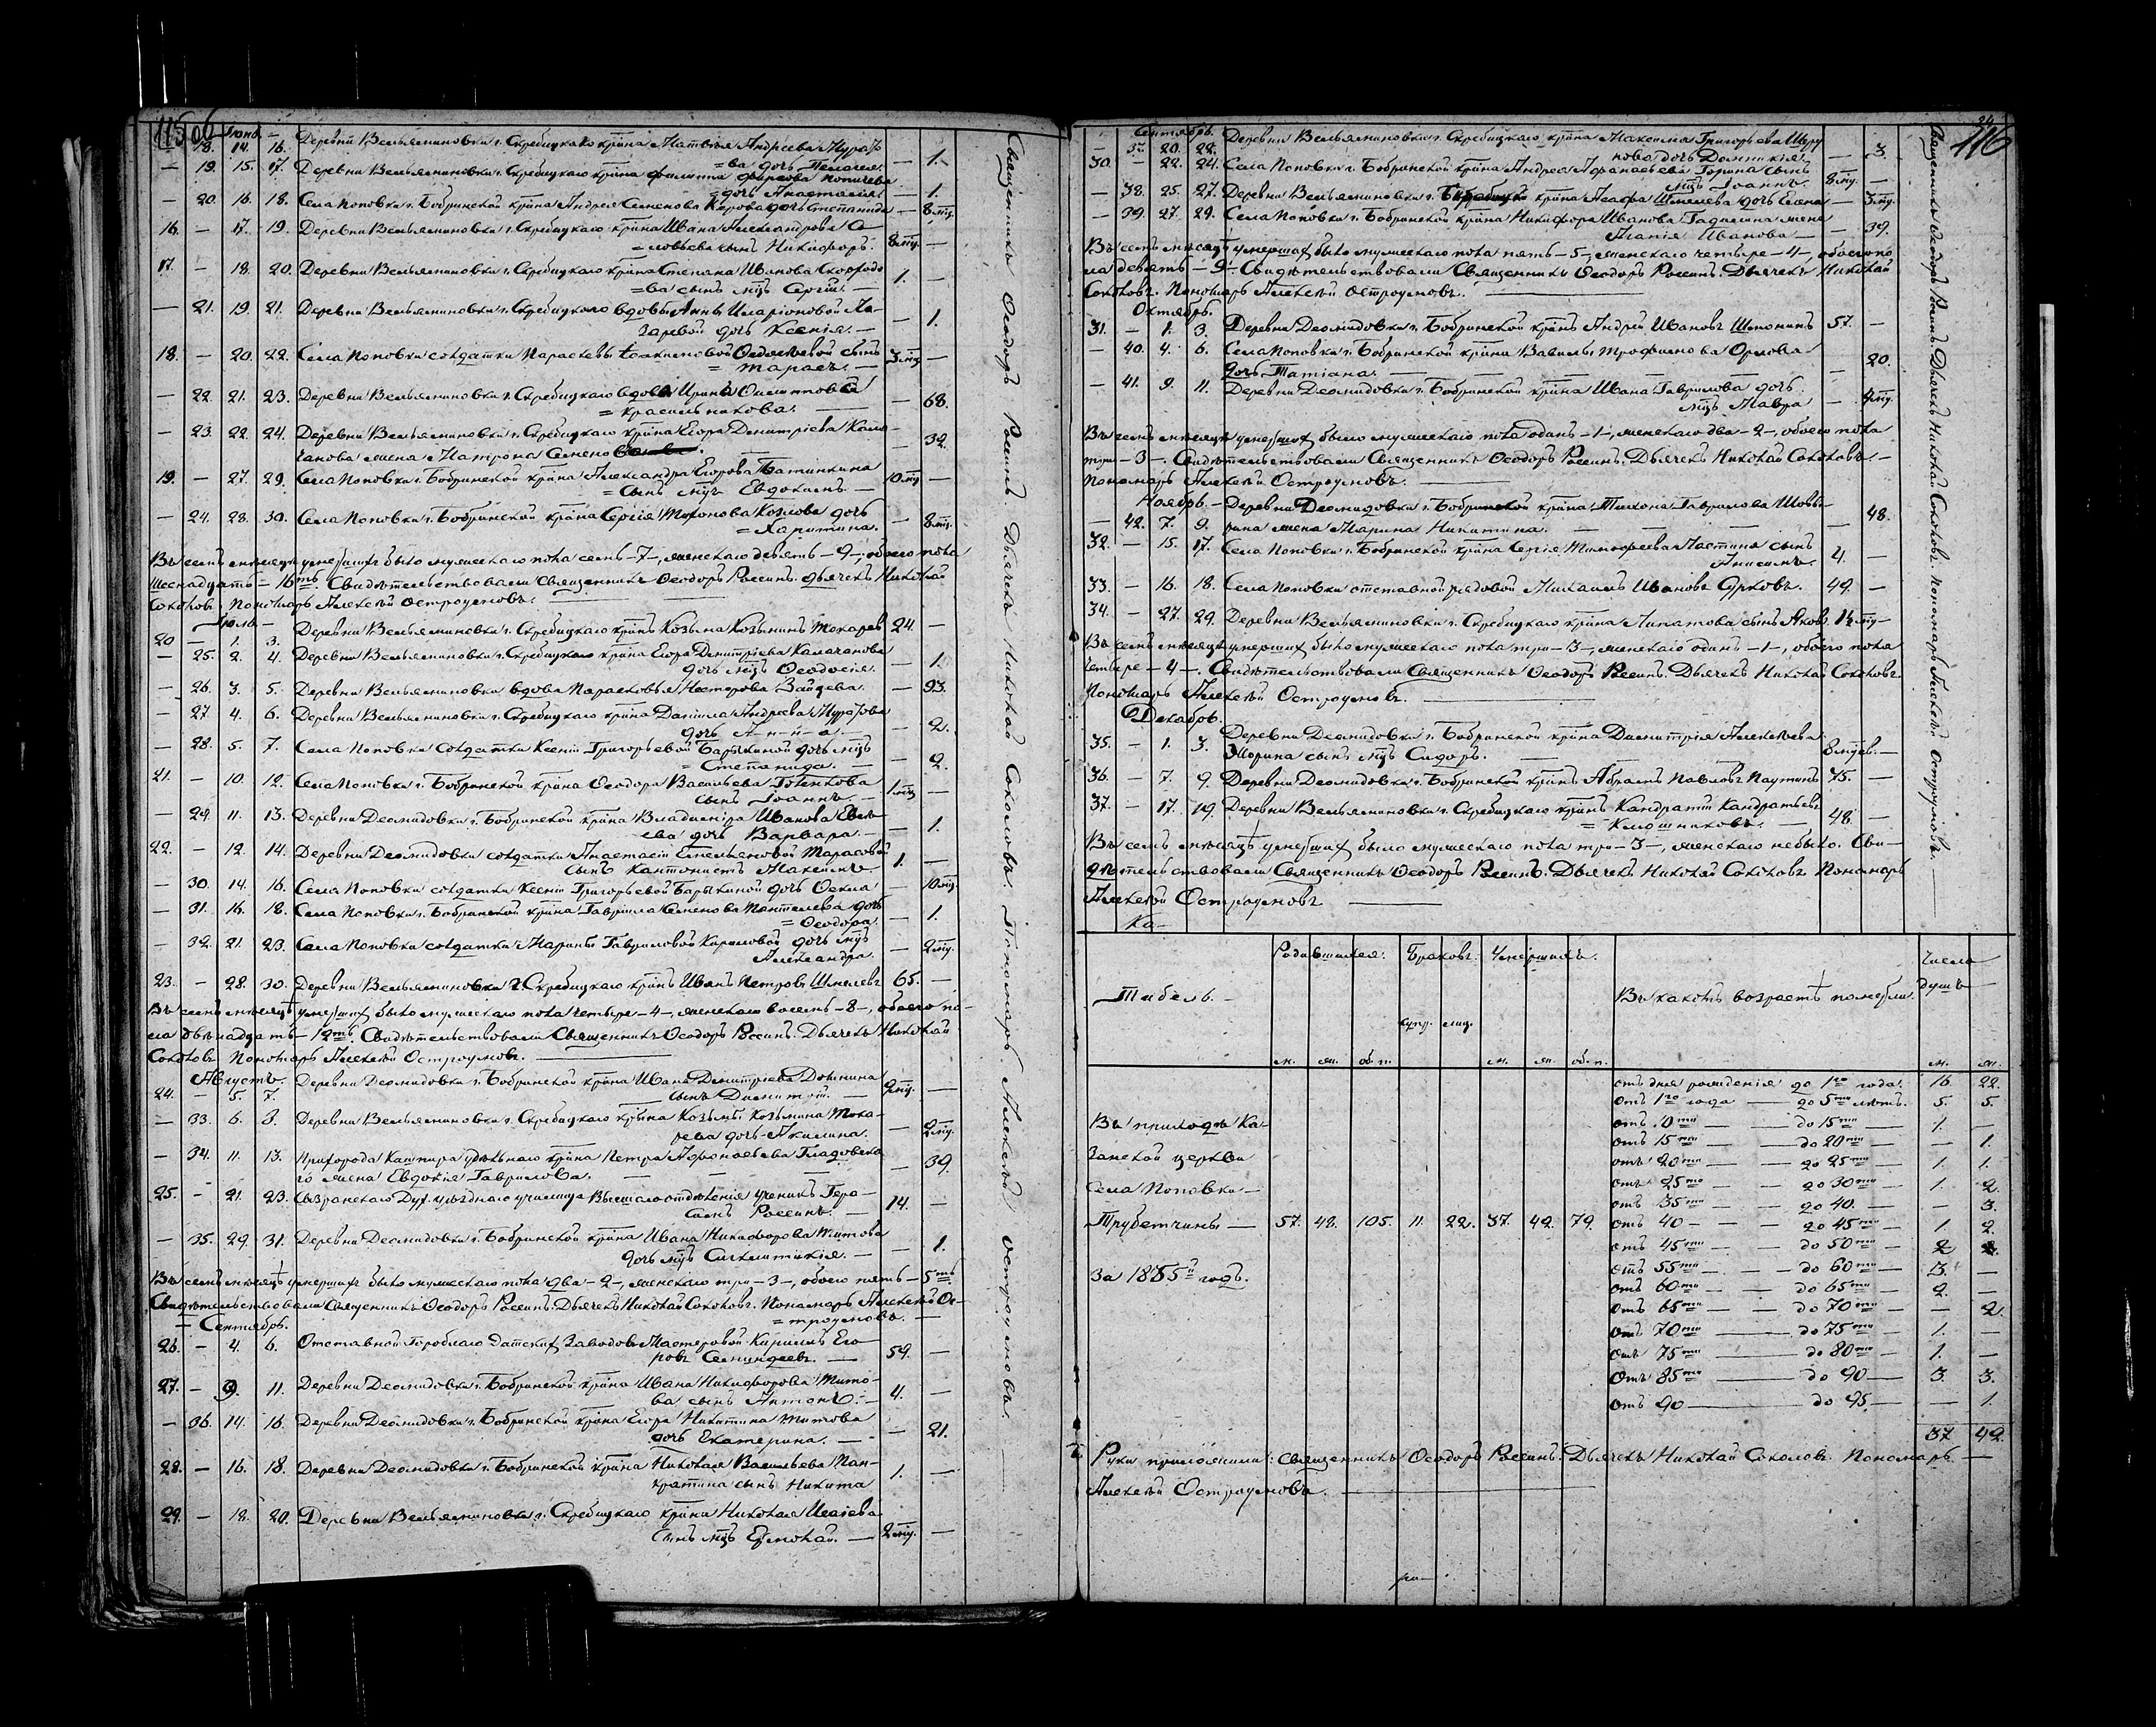 115 об
Іюнь
— 18. 14. 16. Деревни Вельяминовки г. Скребицкаго крѣна Матвѣя Андреева Мура-
= ва дочь Пелагея. — 1.
— 19. 15. 17. Деревни Вельяминовки г. Скребицкаго крѣна Филиппа
= дочь Анастасія. — 1.
— 20. 16. 18. Села Поповки г. Бобринской крѣна Андрея Семенова дочь Степанида — 8 мц.
16. — 17. 19. Деревни Вельяминовки г. Скребицкаго крѣна Ивана Александрова Со-
= ловьева сынъ Никифоръ. 8 мц. —
17. — 18. 20. Деревни Вельяминовки г. Скребицкаго крѣна Степана Иванова Скоробо
= ва сынъ мцъ Сергій. — 1. —
— 21. 19. 21. Деревни Вельяминовки г. Скребицкаго вдовы Анны Иларіоновой Ла-
заревой дочь Ксенія. — — 1.
18. — 20. 22. Села Поповки солдатки Параскевы Іоакимовой сынъ
= Тарасъ. — 3 мц —
— 22. 21. 23. Деревни Вельяминовки г. Скребицкаго вдова Ирина
= Красильникова. — — 68.
— 23. 22. 24. Деревни Вельяминовки г. Скребицкаго крѣна Егора Димитріева Кала-
чанова жена Матрона Семенова. — 32.
19. — 27. 29. Села Поповки г. Бобринской крѣна Александра Егорова Батинкина
= сынъ мцъ Евдокимъ — 10 мц —
— 24. 28. 30. Села Поповки г. Бобринской крѣна Сергія Козлова дочь
= Харитина. — 8 мц.
Въ семъ мѣсяцѣ умершихъ было мужескаго пола семь – 7 –, женскаго девять – 9 –, обоего пола
шеснадцать – 16ть Свидѣтельствовали Священникъ Ѳеодоръ Россинъ. Дьячекъ Николай
Соколовъ. Пономарь Алексѣй Остроумовъ.
Іюль.
20 — 1. 3. Деревни Вельяминовки г. Скребицкаго крѣнъ Козьма Козьминъ Токарев 24. —
— 25. 2. 4. Деревни Вельяминовки г. Скребицкаго крѣна Егора Димитріева Калачанова
дочь мцъ Ѳеодосія. — — 1.
— 26. 3. 5. Деревни Вельяминовки вдова Парасковья Нестерова Зайцева. — 93.
— 27. 4. 6. Деревни Вельяминовки г. Скребицкаго крѣна Даніила Андреева
дочь Анна. — — 2.
— 28. 5. 7. Села Поповки солдатки Ксеніи Григорьевой Барыкиной дочь мцъ
= Степанида. — — 2.
21. — 10. 12. Села Поповки г. Бобринской крѣна Ѳеодора Васильева
сынъ Іоаннъ — 1 мц —
— 29. 11. 13. Деревни Деомидовки г. Бобринской крѣна Владимира Иванова
ева дочь Варвара. — — 1.
22. — 12. 14. Деревни Деомидовки солдатки Анастасіи Емельяновой Тарасовой
сынъ кантонистъ Максимъ. 1. —
— 30. 14. 16. Села Поповки солдатки Ксеніи Григорьевой Барыкиной дочь Ѳекла — 10 мц.
— 31. 16. 18. Села Поповки г. Бобринской крѣна Гавріила Семенова Пантелева дочь
= Ѳеодора. — 1.
— 32. 21. 23. Села Поповки солдатки Марины Гавриловой Кириловой дочь мцъ
Александра. — 2 мц.
23. — 28. 30. Деревни Вельяминовки г. Скребицкаго крѣнъ Иванъ Петровъ Шмелевъ 65. —
Въ семъ мѣсяцѣ умершихъ было мужескаго пола четыре – 4 –, женскаго восемь – 8 –, обоего по-
ла двѣнадцать – 12ть. Свидѣтельствовали Священникъ Ѳеодоръ Россинъ. Дьячекъ Николай
Соколовъ. Пономарь Алексѣй Остроумовъ.
Августъ.
24. — 5. 7. Деревни Деомидовки г. Бобринской крѣна Ивана Димитріева Домнина
сынъ Димитрій. — 2 мц. —
— 33. 6. 8. Деревни Вельяминовки г. Скребицкаго крѣна Козьмы Козьмина Тока-
рева дочь Акилина. — 2 мц.
— 34. 11. 13. Пригорода Кашпира удѣльнаго крѣна Петра Афонасьева
го жена Евдокія Гаврилова. — — 39.
25. — 21. 23. Сызранскаго Дух. уѣзднаго училища Высшаго отдѣленія ученикъ Гера-
симъ Россинъ. — 14. —
— 35. 29. 31. Деревни Деомидовки г. Бобринской крѣна Ивана Никифорова Титова
дочь мцъ Синклитикія. — — 1.
Въ семъ мѣсяцѣ умершихъ было мужескаго пола два – 2 –, женскаго три – 3 –, обоего пять – 5ть
Свидѣтельствовали Священникъ Ѳеодоръ Россинъ. Дьячекъ Николай Соколовъ. Пономарь Алексѣй Ос-
= троумовъ.
Сентябрь.
26. — 4. 6. Отставной Заводовъ Мастеровой Кириллъ Его
ровъ — 59. —
27. — 9. 11. Деревни Деомидовки г. Бобринской крѣна Ивана Никифорова Тито-
ва сынъ Антоній. — 4. —
— 36. 14. 16. Деревни Деомидовки г. Бобринской крѣна Егора Никитина Титова
дочь Екатерина. — — 21.
28. — 16. 18. Деревни Деомидовки г. Бобринской крѣна Николая Васильева Пан-
кратина сынъ Никита 1. —
29. — 18. 20. Деревни Вельяминовки г. Скребицкаго крѣна Николая Исаіева
сынъ мцъ — 2 мц. —
Священникъ Ѳеодоръ Россинъ. Дьячекъ Николай Соколовъ. Пономарь Алексѣй Остроумовъ.
24
116
Сентябрь.
— 37. 20. 22. Деревни Вельяминовки г. Скребицкаго крѣна Максима Григорьева
нова дочь Домникія. — 3.
30. — 22. 24. Села Поповки г. Бобринской крѣна Андрея Афанасьева Горина сынъ
мцъ Іоаннъ. 8 мц. —
— 38. 25. 27. Деревни Вельяминовки г. крѣна Агафа Шмелева дочь Елена — 3 мц.
— 39. 27. 29. Села Поповки г. Бобринской крѣна Никифора Иванова жена
Агапія Иванова — — 39.
Въ семъ мѣсяцѣ умершихъ было мужескаго пола пять – 5 –, женскаго четыре – 4 –, обоего по
ла девять – 9 – Свидѣтельствовали Священникъ Ѳеодоръ Россинъ. Дьячекъ Николай
Соколовъ. Пономарь Алексѣй Остроумовъ.
Октябрь.
31. — 1. 3. Деревни Деомидовки г. Бобринской крѣнъ Андрей Ивановъ 57. —
— 40. 4. 6. Села Поповки г. Бобринской крѣна Вавилы Трофимова Орлова
дочь Татіана. — — 20.
— 41. 9. 11. Деревни Деомидовки г. Бобринской крѣна Ивана Гаврилова дочь
мцъ Мавра — 4 мц.
Въ семъ мѣсяцѣ умершихъ было мужескаго пола одинъ – 1 –, женскаго два – 2 –, обоего пола
три – 3 –. Свидѣтельствовали Священникъ Ѳеодоръ Россинъ. Дьячекъ Николай Соколовъ. –
Пономарь Алексѣй Остроумовъ.
Ноябрь. — Деревни Деомидовки г. Бобринской крѣна Тихона Гаврилова
— 42. 7. 9. рина жена Марина Никитина. — — 48.
32. — 15. 17. Села Поповки г. Бобринской крѣна Сергія Тимофеева Ластина сынъ
Анисимъ. 4. —
33. — 16. 18. Села Поповки отставной рядовой Михаилъ Ивановъ 49. —
34. — 27. 29. Деревни Вельяминовки г. Скребицкаго крѣна Липатова сынъ Яковъ. —
Въ семъ мѣсяцѣ умершихъ было мужескаго пола три – 3 –, женскаго одинъ – 1 –, обоего пола
четыре – 4 –. Свидѣтельствовали Священникъ Ѳеодоръ Россинъ. Дьячекъ Николай Соколовъ.
Пономарь Алексѣй Остроумовъ.
Декабрь.
35. — 1. 3. Деревни Деомидовки г. Бобринской крѣна Димитрія Алексѣева
сынъ мцъ Сидоръ. — 8 мцев. —
36. — 7. 9. Деревни Деомидовки г. Бобринской крѣнъ Абрамъ Павловъ Паутинъ 75. —
37. — 17. 19. Деревни Вельяминовки г. Скребицкаго крѣнъ Кандратій Кандратьевъ
= Клюшниковъ. — 48. —
Въ семъ мѣсяцѣ умершихъ было мужескаго пола три – 3 –, женскаго небыло. Сви-
дѣтельствовали Священникъ Ѳеодоръ Россинъ. Дьячекъ Николай Соколовъ. Пономарь
Алексѣй Остроумовъ
Ка-
Священникъ Ѳеодоръ Россинъ. Дьячекъ Николай Соколовъ. Пономарь Алексѣй Остроумовъ.
Родившихся. Браковъ. Умершихъ. Числа
Табель. — Въ какомъ возрастѣ померли. душъ
супр. лиц.
м. ж. об. п. м. ж. об. п. м. ж.
отъ дня рожденія до 1го года. 16. 22.
отъ 1го года — до 5ти лѣтъ. 5. 5.
Въ приходѣ Ка- отъ 10ти — до 15ти — 1. —
отъ 15ти — до 20ти — — 1.
занской церкви отъ 20ти — до 25ти — 1. 1.
Села Поповки — отъ 25ти — до 30ти — 1. 2.
отъ 35ти — до 40. — — 3.
Трубетчины — 57. 48. 105. 11. 22. 37. 42. 79. отъ 40 — до 45ти — 1. 2.
отъ 45ти — до 50ти — 2
За 1855й годъ. отъ 55ти — до 60ти — 3. —
отъ 60ти — до 65ти — 2. —
отъ 65ти — до 70ти — — 2.
отъ 70ти — до 75ти — 1. —
отъ 75ти — до 80ти — 1. —
отъ 85ти — до 90 — 3. 3.
отъ 90 — до 95. — — 1.
37 42.
Руки приложили: Священникъ Ѳеодоръ Россинъ. Дьячекъ Николай Соколовъ. Пономарь —
Алексѣй Остроумовъ.